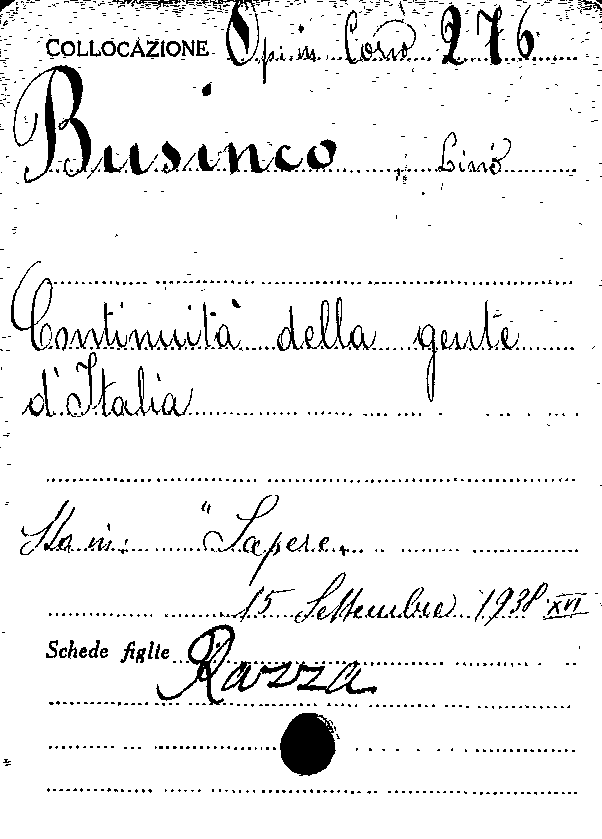 COLLOCAZIONE Op. in Cons 276
Businco, Lino
Continuità della gente
d'Italia
Sta in: "Sapere"
15 Settembre 1938 XVI
Schede figlie Razza